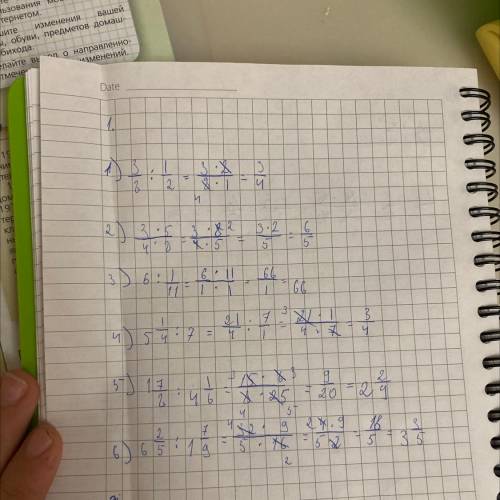 льзования мо
тернетом.
шите изменения вашей
и, обуви, предметов домаш-
бихода.
елайте вывод о направленно-
изменений.
Date
1.
1) 3/8 : 1/2 = 3·8/8·1 = 3/4
4
2) 3·5/4·8 = 3·8 2/4·5 = 3·2/5 = 6/5
3) 6 : 1/11 = 6·11/1·1 = 66/1 = 66
4) 5 1/4 : 7 = 21/4 : 7/1 = 3 21·1/4·7 = 3/4
5) 1 7/8 : 4 1/6 = 3 15·6 3/8·25 = 9/20 = 2 2/9
4 5
6) 6 2/5 : 1 7/9 = 4 32·9/5·16 = 2 4·9/5 2 = 18/5 = 3 3/5
2